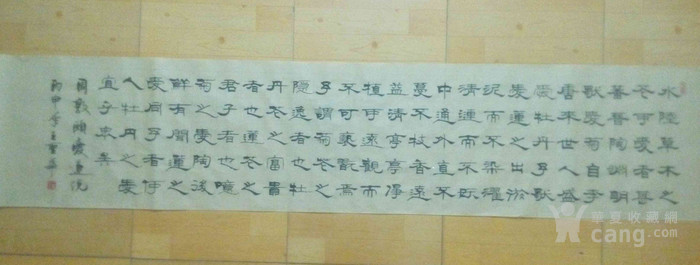 水陸草木之
花可愛者甚
蕃晉陶淵明
獨愛菊自李
唐來世人盛
愛牡丹予獨
愛蓮之出淤
泥而不染濯
清漣而不妖
中通外直不
蔓不枝香遠
益清亭亭淨
植可遠觀而
不可褻玩焉
予謂菊花之
隱逸者也牡
丹花之富貴
者也蓮花之
君子者也噫
菊之愛陶後
鮮有聞蓮之
愛同予者何
人牡丹之愛
宜乎眾矣
周敦頤愛蓮說
丙申年王華
華夏收藏網
cang.com